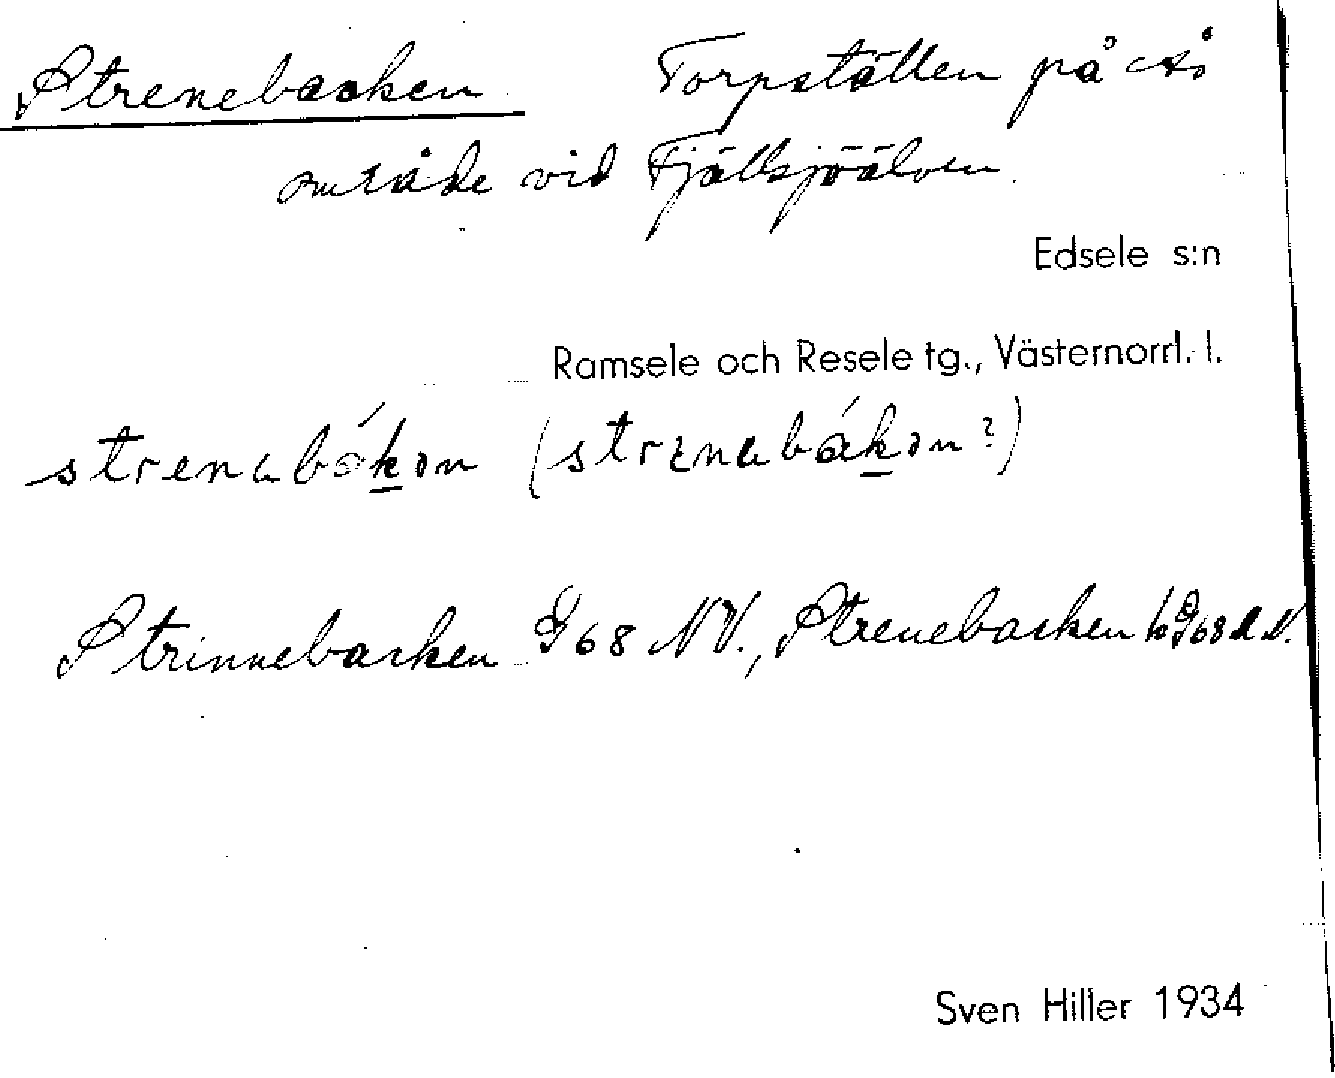 Strenebacken Torpställen på Ås
område vid Fjällsjöälven.
Edsele s:n
Ramsele och Resele tg., Västernorrl. l.
strenabákən (strɪnabákən?)
Strinnebacken G68 NV., Strenebacken G68
Sven Hiller 1934